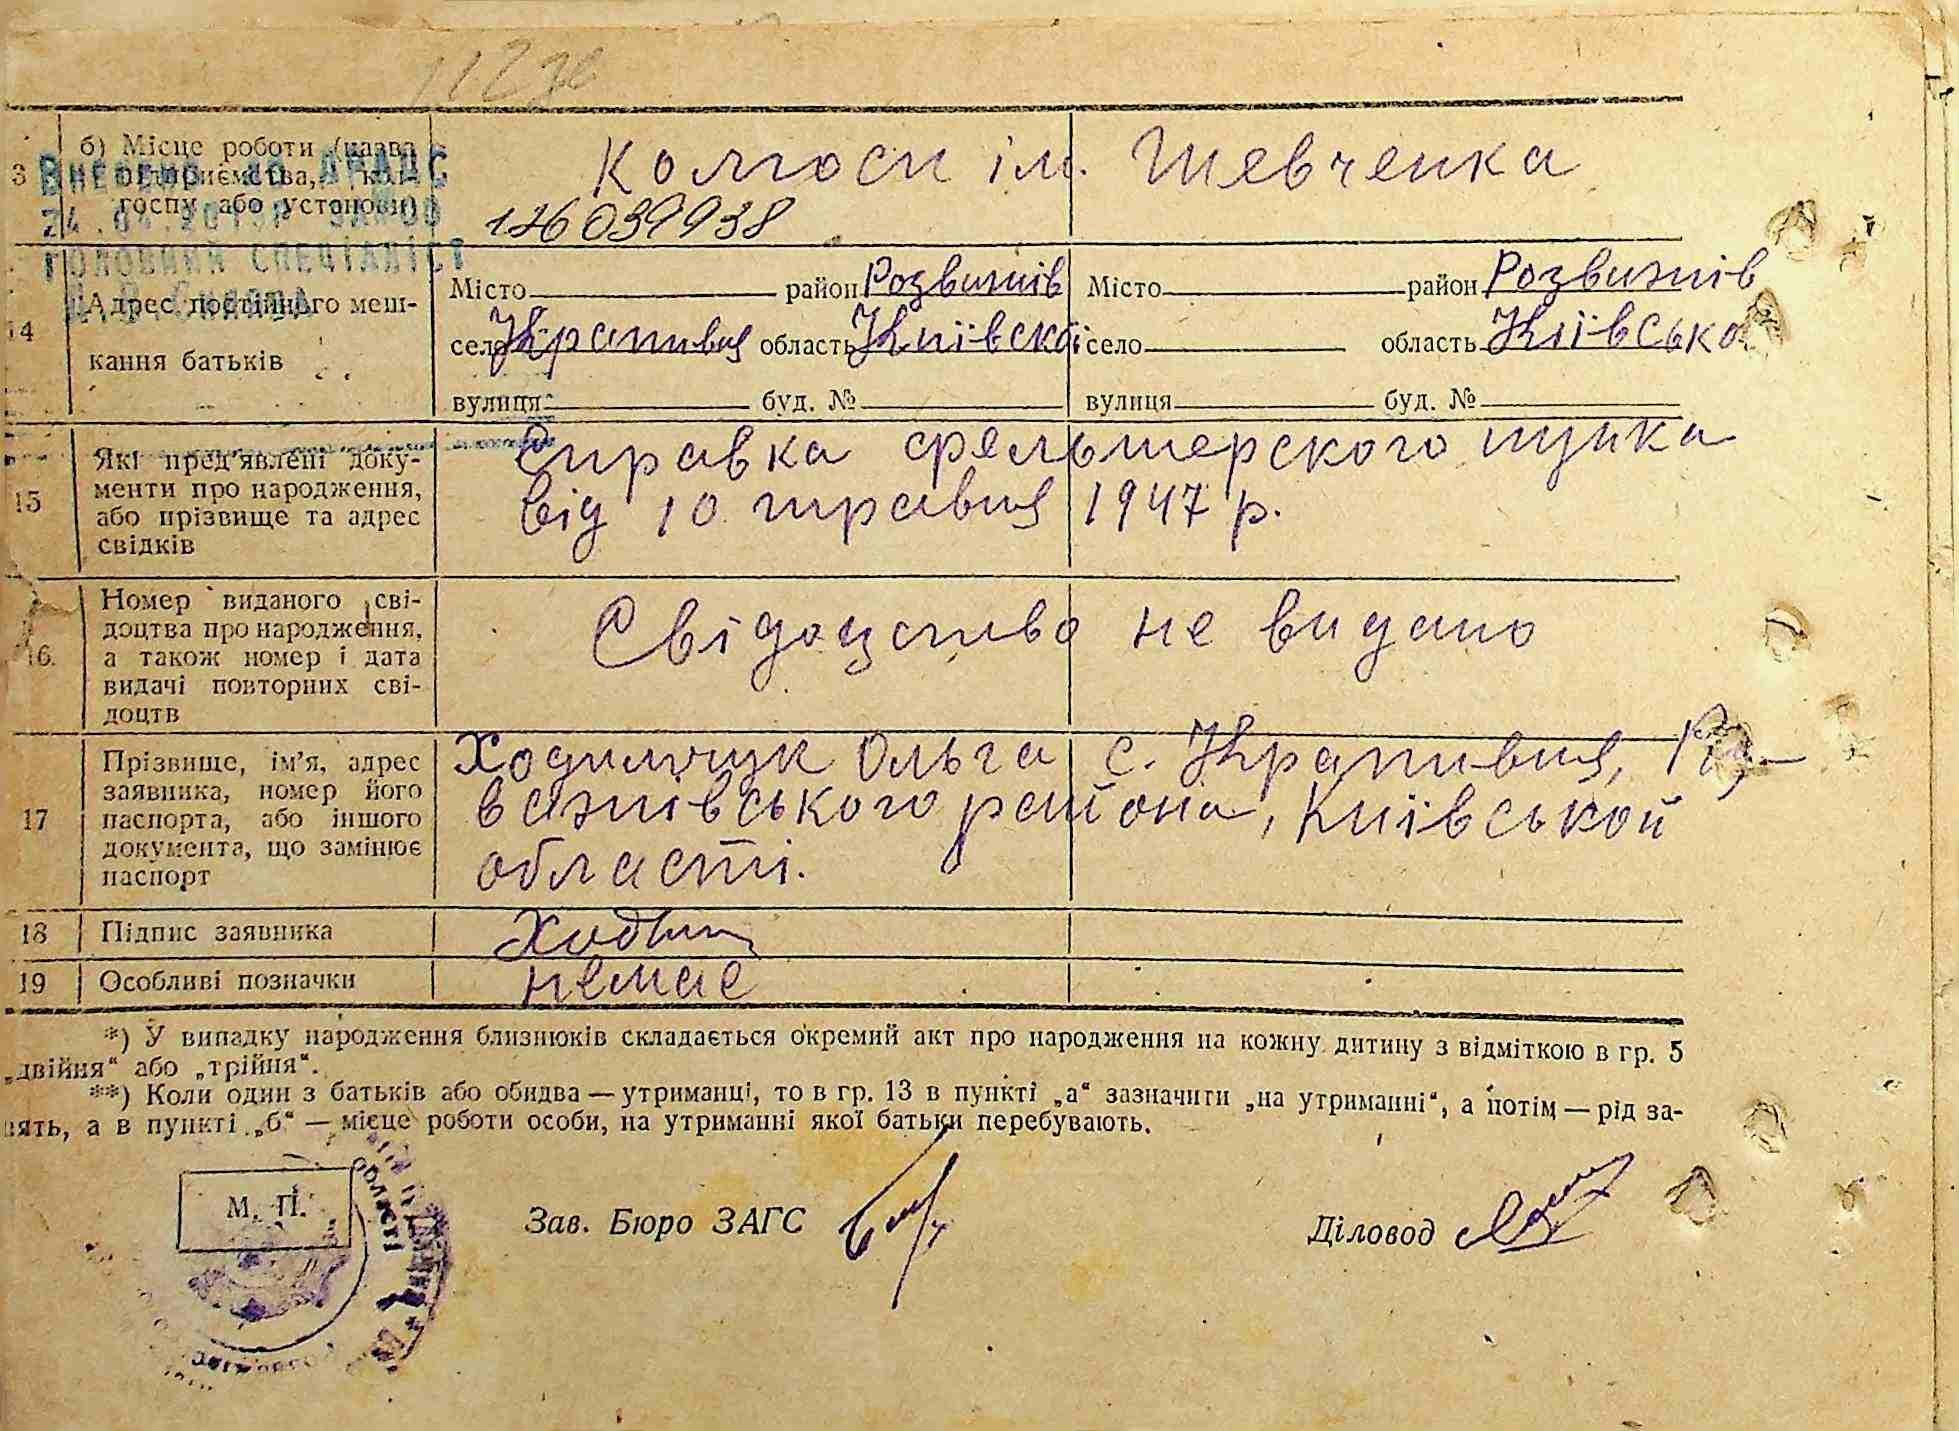 1123в
3 б) Місце роботи (назва підприємства, кол-
госпу або установи)
Колгосп ім. Шевченка
126039938
Внесено до ДРАЦС
головний спеціаліст
14 Адрес постійного меш-
кання батьків
Місто район Розважів Місто район Розважів
село Крапивня область Київській село область Київсько
вулиця буд. № вулиця буд. №
15 Які пред'явлені доку-
менти про народження,
або прізвище та адрес
свідків
Справка фельшерского пунка
від 10 травня 1947 р.
16. Номер виданого сві-
доцтва про народження,
а також номер і дата
видачі повторних сві-
доцтв
Свідоцтво не видано
17 Прізвище, ім'я, адрес
заявника, номер його
паспорта, або іншого
документа, що замінює
паспорт
Ольга с. Крапивня, Роз-
важівського района, Київськой
області.
18 Підпис заявника
19 Особливі позначки немає
*) У випадку народження близнюків складається окремий акт про народження на кожну дитину з відміткою в гр. 5
„двійня“ або „трійня“.
**) Коли один з батьків або обидва — утриманці, то в гр. 13 в пункті „а“ зазначити „на утриманні“, а потім — рід за-
нять, а в пункті „б“ — місце роботи особи, на утриманні якої батьки перебувають.
М. П.
Зав. Бюро ЗАГС Діловод